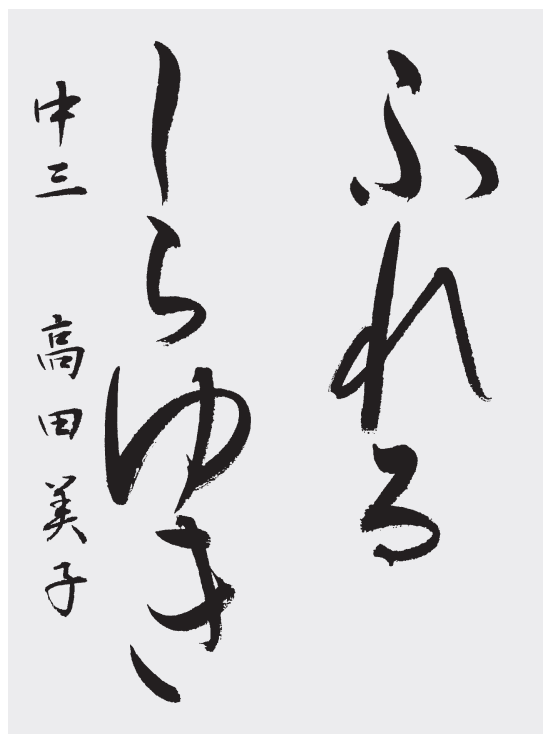 ふれる
しらゆき
中三 高田美子